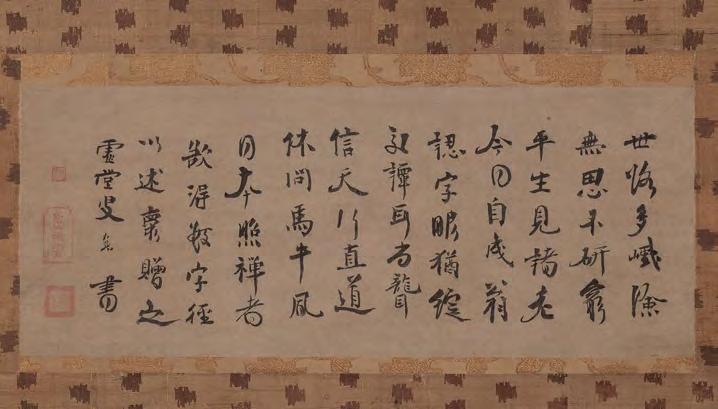 世路多巇嶮
無思不研窮
平生見諸老
今日自成翁
認字眼猶綻
交譚耳尚聾
信天行直道
休問馬牛風
日本照禪者
欲得數字徑
以述懷贈之
虛堂叟書